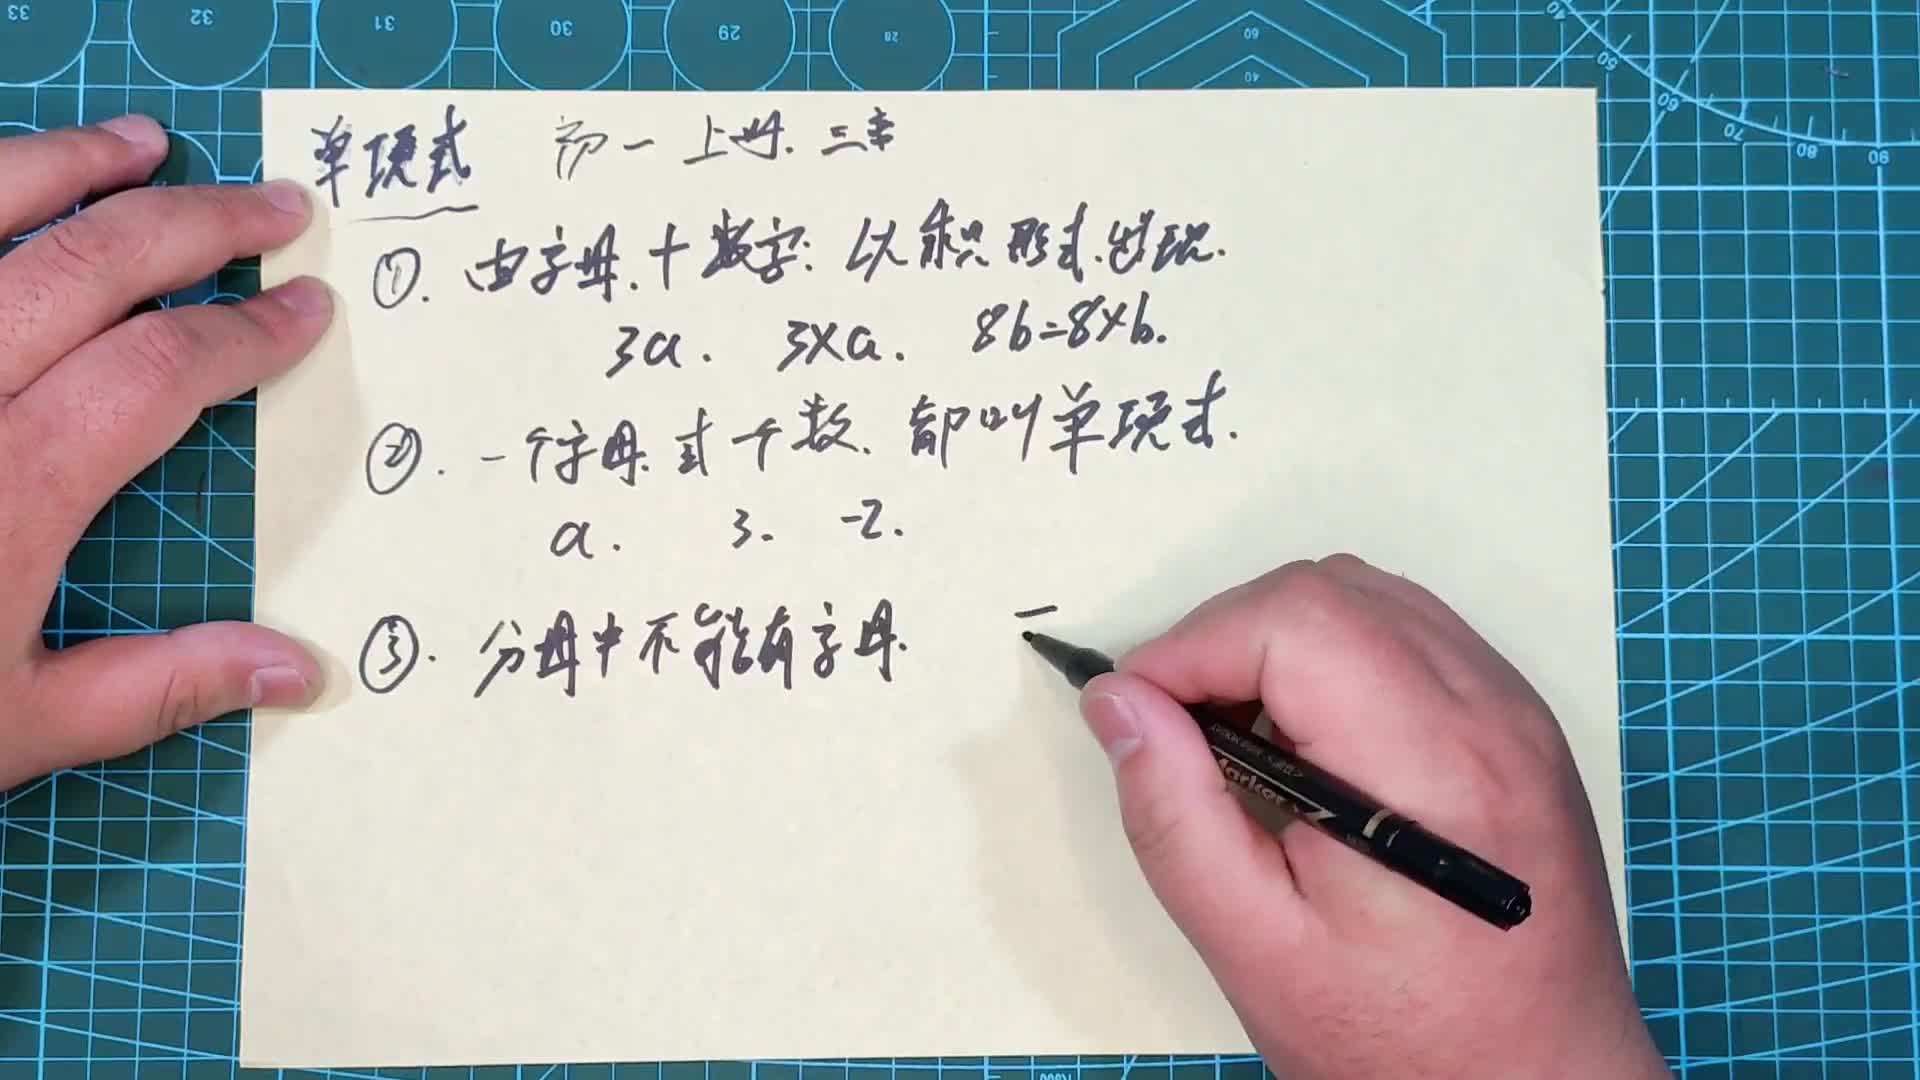 33 32 31 30 29 28
60
40
40 50 60 70 80 90
单项式 初一上册. 三章
①. 由字母.+数字: 以乘积形式.出现.
3a. 3×a. 8b=8×b.
②. 一个字母. 或一个数. 都叫单项式.
a. 3. -2.
③. 分母中不能有字母.
Marker